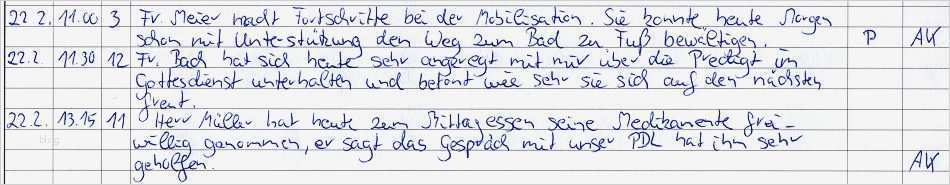 22.2. 11.00 3 Fr. Meier macht Fortschritte bei der Mobilisation. Sie konnte heute Morgen
schon mit Unterstützung den Weg zum Bad zu Fuß bewältigen. P AK
22.2. 11.30 12 Fr. Bach hat sich heute sehr angeregt mit mir über die Predigt im
Gottesdienst unterhalten und betont wie sehr sie sich auf den nächsten
freut.
22.2. 13.15 11 Herr Müller hat heute zum Mittagessen seine Medikamente frei-
willig genommen, er sagt das Gespräch mit unser PDL hat ihm sehr
geholfen. AK